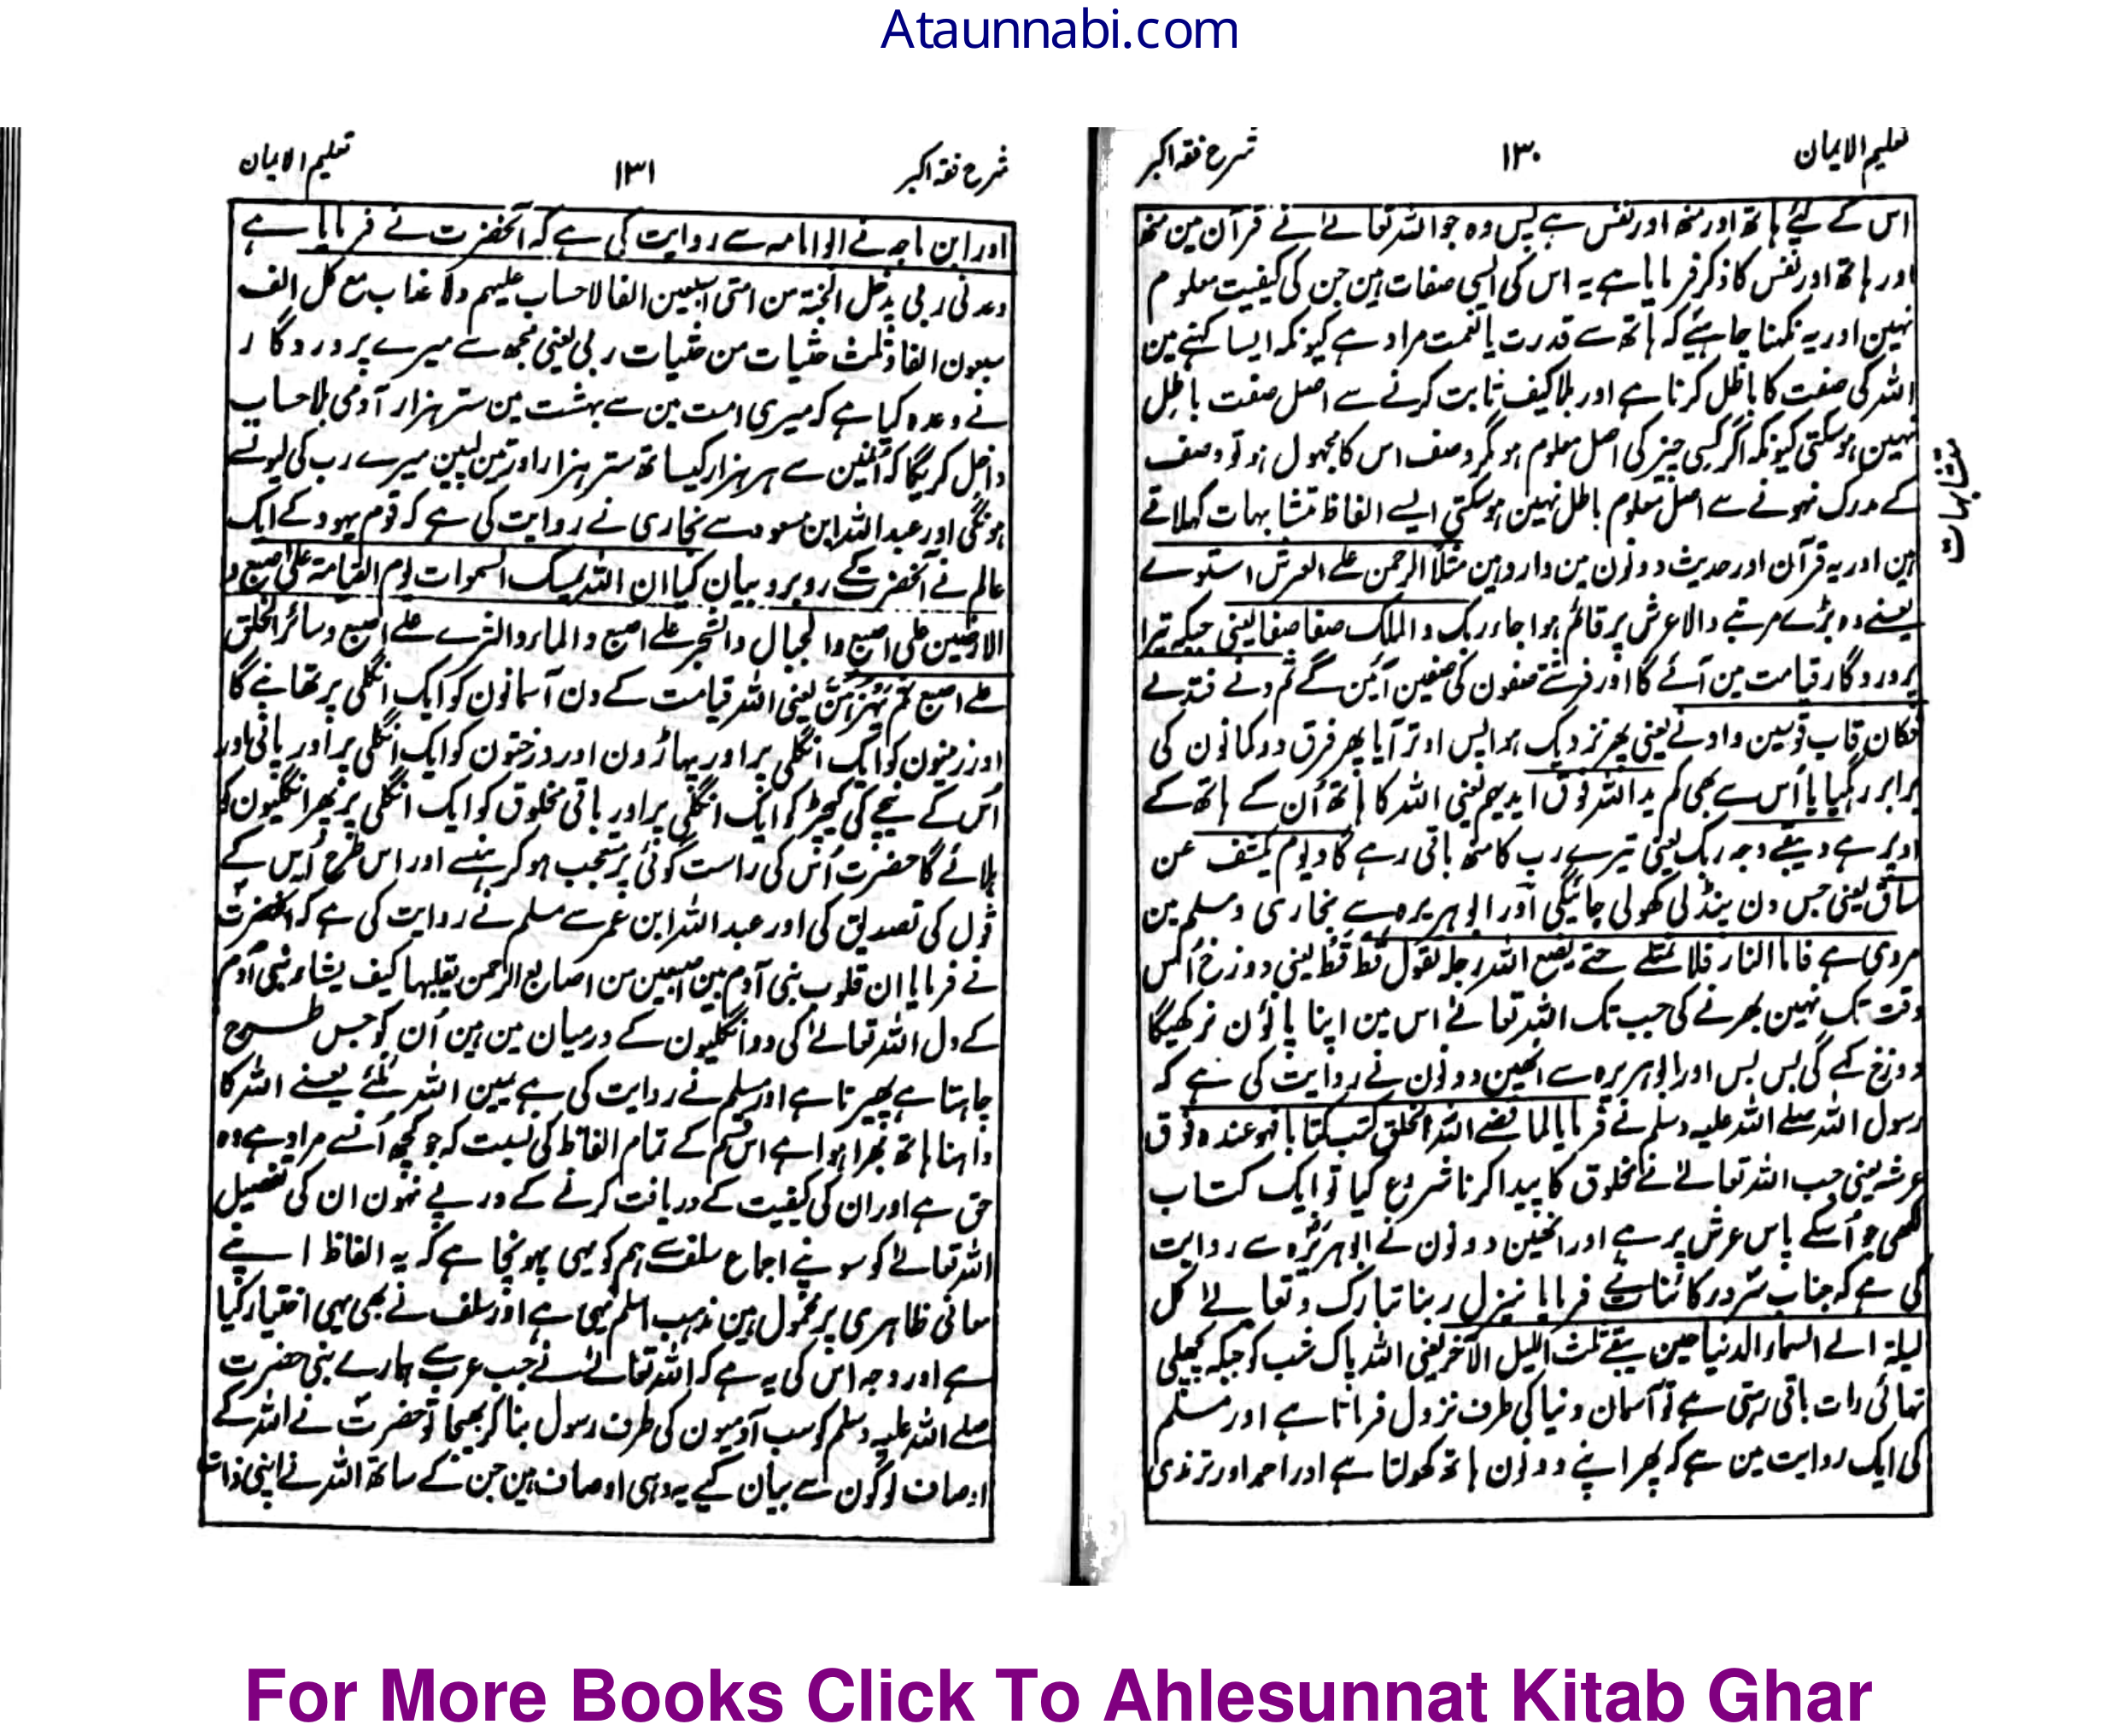 Ataunnabi.com
تعلیم الایمان
۱۳۰
شرح فقہ اکبر
اس کے لیے ہاتھ اور منھ اور نفس ہے پس وہ جو اللہ تعالےٰ نے قرآن مین منھ
اور ہاتھ اور نفس کا ذکر فرمایا ہے یہ اس کی ایسی صفات ہین جن کی کیفیت معلوم
نہین اور یہ نکہنا چاہیے کہ ہاتھ سے قدرت یا نعمت مراد ہے کیونکہ ایسا کہنے مین
اللہ کی صفت کا باطل کرنا ہے اور بلا کیف ثابت کرنے سے اصل صفت باطل
نہین ہو سکتی کیونکہ اگر کسی چیز کی اصل معلوم ہو مگر وصف اس کا مجہول ہو تو وصف
کے مدرک نہونے سے اصل معلوم باطل نہین ہو سکتی ایسے الفاظ متشابہات کہلاتے
متشابہات
ہین اور یہ قرآن اور حدیث دونون مین وارد ہین مثلاً الرحمن علے العرش استوے
یعنے وہ بڑے مرتبے والا عرش پر قائم ہوا جاء ربک والملک صفا صفا یعنی جبکہ تیرا
پروردگار قیامت مین آئے گا اور فرشتے صفون کی صفین آئین گے ثم دنے فتدلے
فکان قاب قوسین وادنے یعنی پھر نزدیک ہوا پس اوتر آیا پھر فرق دو کمانون کی
برابر رہگیا یا اُس سے بھی کم ید اللہ فوق ایدیہم یعنی اللہ کا ہاتھ اُن کے ہاتھ کے
اوپر ہے ویبقے وجہ ربک یعنی تیرے رب کا منھ باقی رہے گا ویوم یکشف عن
ساق یعنی جس دن پنڈلی کھولی جائیگی اور ابو ہریرہ سے بخاری و مسلم مین
مروی ہے فاما النار فلا تمتلے حتے یضع اللہ رجلہ تقول قط قط یعنی دوزخ اُس
وقت تک نہین بھرنے کی جب تک اللہ تعالےٰ اس مین اپنا پاؤن نرکھیگا
دوزخ کہے گی بس بس اور ابو ہریرہ سے انھین دونون نے روایت کی ہے کہ
رسول اللہ صلے اللہ علیہ وسلم نے فرمایا لما قضے اللہ الخلق کتب کتابا فہو عندہ فوق
عرشہ یعنی جب اللہ تعالےٰ نے مخلوق کا پیدا کرنا شروع کیا تو ایک کتاب
لکھی جو اُسکے پاس عرش پر ہے اور انھین دونون نے ابو ہریرہ سے روایت
کی ہے کہ جناب سرور کائنات نے فرمایا ینزل ربنا تبارک وتعالےٰ کل
لیلۃ الے السماء الدنیا حین یبقے ثلث اللیل الآخر یعنی اللہ پاک شب کو جبکہ پچھلی
تہائی رات باقی رہتی ہے تو آسمان دنیا کی طرف نزول فرماتا ہے اور مسلم
کی ایک روایت مین ہے کہ پھر اپنے دونون ہاتھ کھولتا ہے اور احمد اور ترمذی
شرح فقہ اکبر
۱۳۱
تعلیم الایمان
اور ابن ماجہ نے ابو امامہ سے روایت کی ہے کہ آنحضرت نے فرمایا ہے
وعدنی ربی یدخل الجنۃ من امتی سبعین الفا لا حساب علیہم ولا عذاب مع کل الف
سبعون الفا وثلث حثیات من حثیات ربی یعنی مجھ سے میرے پروردگار
نے وعدہ کیا ہے کہ میری امت مین سے بہشت مین ستر ہزار آدمی بلا حساب
داخل کریگا کہ انمین سے ہر ہزار کیساتھ ستر ہزار اور تین لپین میرے رب کی لپونسے
ہونگی اور عبد اللہ ابن مسعود سے بخاری نے روایت کی ہے کہ قوم یہود کے ایک
عالم نے آنحضرت کے روبرو بیان کیا ان اللہ یمسک السموات یوم القیامۃ علی اصبع و
الارضین علی اصبع والجبال والشجر علے اصبع والماء والثرے علے اصبع وسائر الخلق
علے اصبع ثم یہزہن یعنی اللہ قیامت کے دن آسمانون کو ایک انگلی پر تھانبے گا
اور زمینون کو ایک انگلی پر اور پہاڑون اور درختون کو ایک انگلی پر اور پانی اور
اُس کے نیچے کی کیچڑ کو ایک انگلی پر اور باقی مخلوق کو ایک انگلی پر پھر انگلیون کو
ہلائے گا حضرت اُس کی راست گوئی پر متعجب ہو کر ہنسے اور اس طرح اُس کے
قول کی تصدیق کی اور عبد اللہ ابن عمر سے مسلم نے روایت کی ہے کہ آنحضرت
نے فرمایا ان قلوب بنی آدم بین اصبعین من اصابع الرحمن یقلبہا کیف یشاء بنی آدم
کے دل اللہ تعالےٰ کی دو انگلیون کے درمیان مین ہین اُن کو جس طرح
چاہتا ہے پھیرتا ہے اور مسلم نے روایت کی ہے یمین اللہ ملئے یعنے اللہ کا
داہنا ہاتھ بھرا ہوا ہے اس قسم کے تمام الفاظ کی نسبت کہ جو کچھ اُنسے مراد ہے وہ
حق ہے اور ان کی کیفیت کے دریافت کرنے کے درپے نہون ان کی تفصیل
اللہ تعالےٰ کو سونپے اجماع سلف سے ہم کو یہی پہونچا ہے کہ یہ الفاظ اپنے
معانی ظاہری پر محمول ہین مذہب اسلم یہی ہے اور سلف نے بھی یہی اختیار کیا
ہے اور وجہ اس کی یہ ہے کہ اللہ تعالےٰ نے جب عرب سے ہمارے نبی حضرت
صلے اللہ علیہ وسلم کو سب آدمیون کی طرف رسول بنا کر بھیجا تو حضرت نے اللہ کے
اوصاف لوگون سے بیان کیے یہ وہی اوصاف ہین جن کے ساتھ اللہ نے اپنی ذات
For More Books Click To Ahlesunnat Kitab Ghar